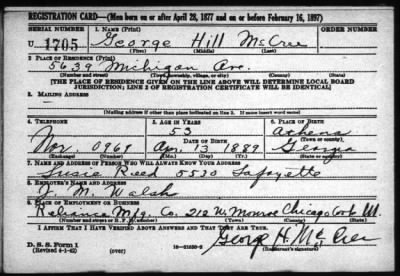 REGISTRATION CARD—(Men born on or after April 28, 1877 and on or before February 16, 1897)
SERIAL NUMBER 1. NAME (Print) ORDER NUMBER
U 1705 George Hill McCree
(First) (Middle) (Last)
2. PLACE OF RESIDENCE (Print)
5639 Michigan Ave.
(Number and street) (Town, township, village, or city) (County) (State)
[THE PLACE OF RESIDENCE GIVEN ON THE LINE ABOVE WILL DETERMINE LOCAL BOARD
JURISDICTION; LINE 2 OF REGISTRATION CERTIFICATE WILL BE IDENTICAL]
3. MAILING ADDRESS
[Mailing address if other than place indicated on line 2. If same insert word same]
4. TELEPHONE 5. AGE IN YEARS 6. PLACE OF BIRTH
53 Athens
DATE OF BIRTH (Town or county)
Nor. 0969 Apr. 13 1889 Georgia
(Exchange) (Number) (Mo.) (Day) (Yr.) (State or country)
7. NAME AND ADDRESS OF PERSON WHO WILL ALWAYS KNOW YOUR ADDRESS
Susie Reed 5530 Lafayette
8. EMPLOYER'S NAME AND ADDRESS
J. M. Walsh
9. PLACE OF EMPLOYMENT OR BUSINESS
Reliance Mfg. Co. 212 W. Monroe Chicago Cook Ill.
(Number and street or R. F. D. number) (Town) (County) (State)
I AFFIRM THAT I HAVE VERIFIED ABOVE ANSWERS AND THAT THEY ARE TRUE.
D. S. S. Form 1
(Revised 4-1-42) (over) George H. McCree
(Registrant's signature)